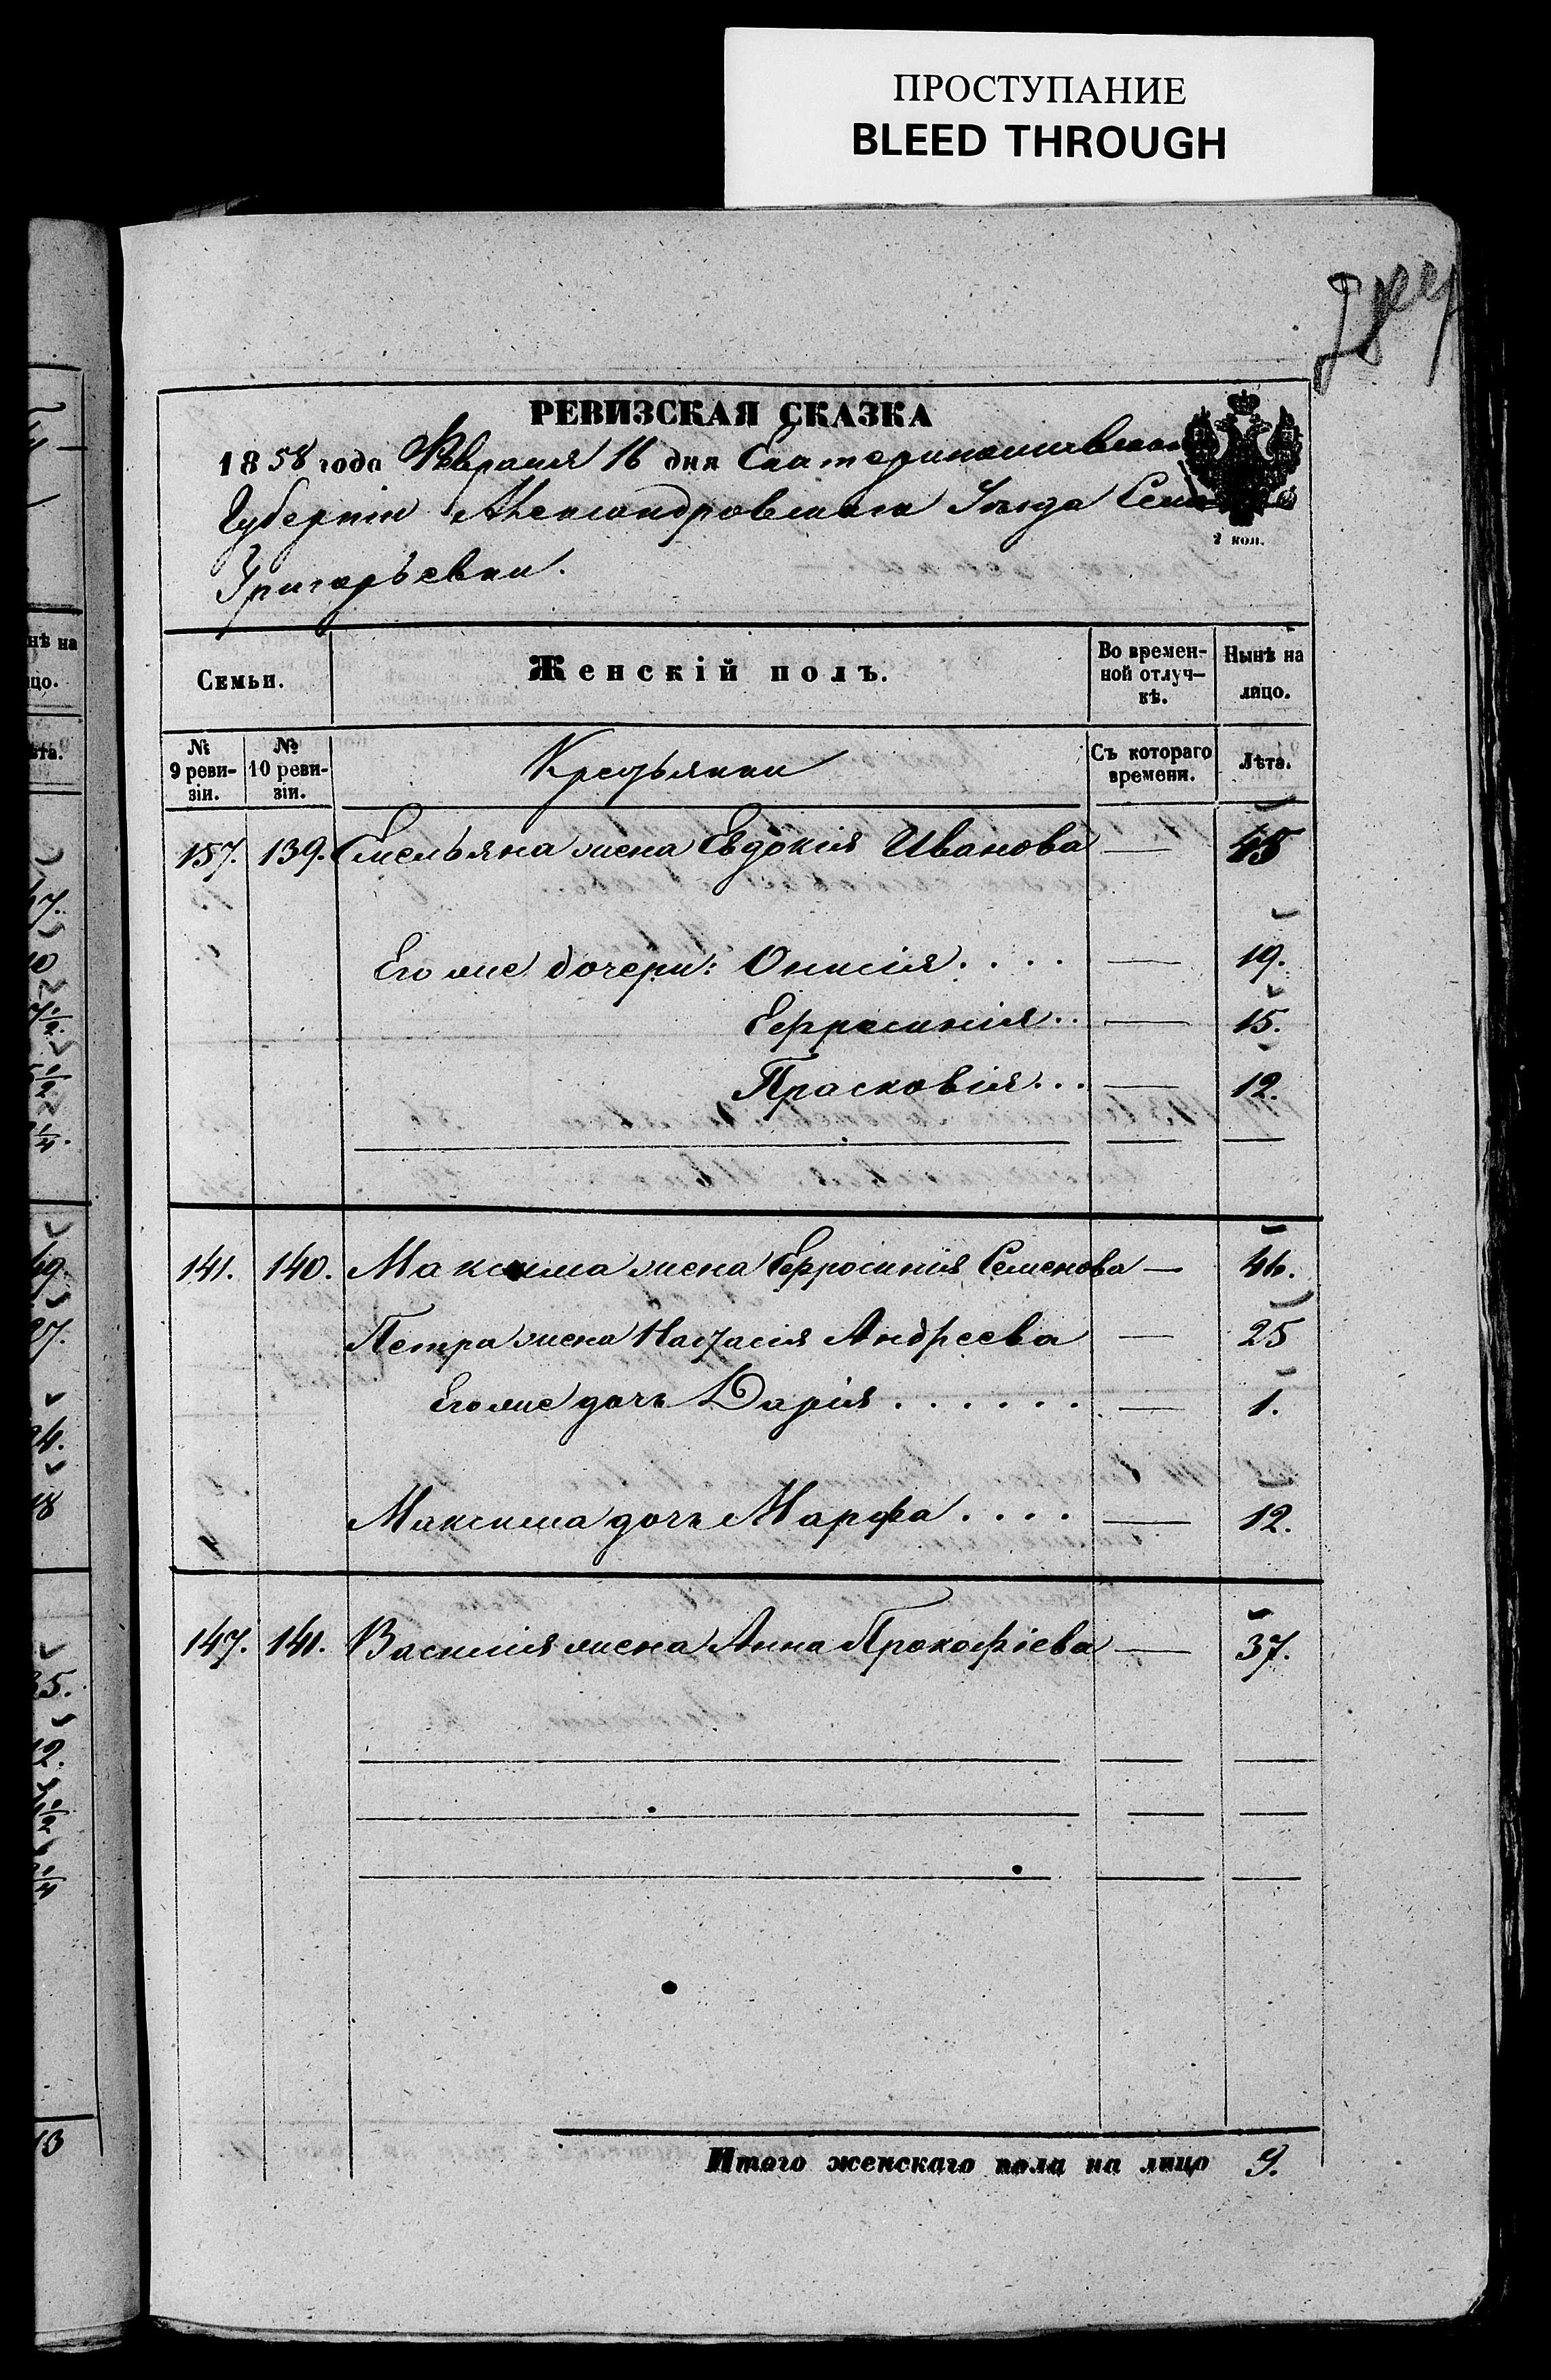 ПРОСТУПАНИЕ
BLEED THROUGH
РЕВИЗСКАЯ СКАЗКА
1858 года Февраля 16 дня Екатеринославской
Губерніи Александровскаго Уѣзда Села
Григорьевки.
2 коп.
Семьи. Женскій полъ. Во временной отлучкѣ. Нынѣ на лицо.
№ 9 ревизіи. № 10 ревизіи. Крестьянки Съ котораго времени. Лѣта.
157. 139. Емельяна жена Евдокія Иванова — 45
Его же дочери: Онисія.... — 19.
Ефросинія.. — 15.
Прасковія... — 12.
141. 140. Максима жена Ефросинія Семенова — 46.
Петра жена Настасія Андреева — 25
Его же дочь Дарія...... — 1.
Максима дочь Марфа.... — 12.
147. 141. Василія жена Анна Прокофіева — 37.
Итого женскаго пола на лицо 9.